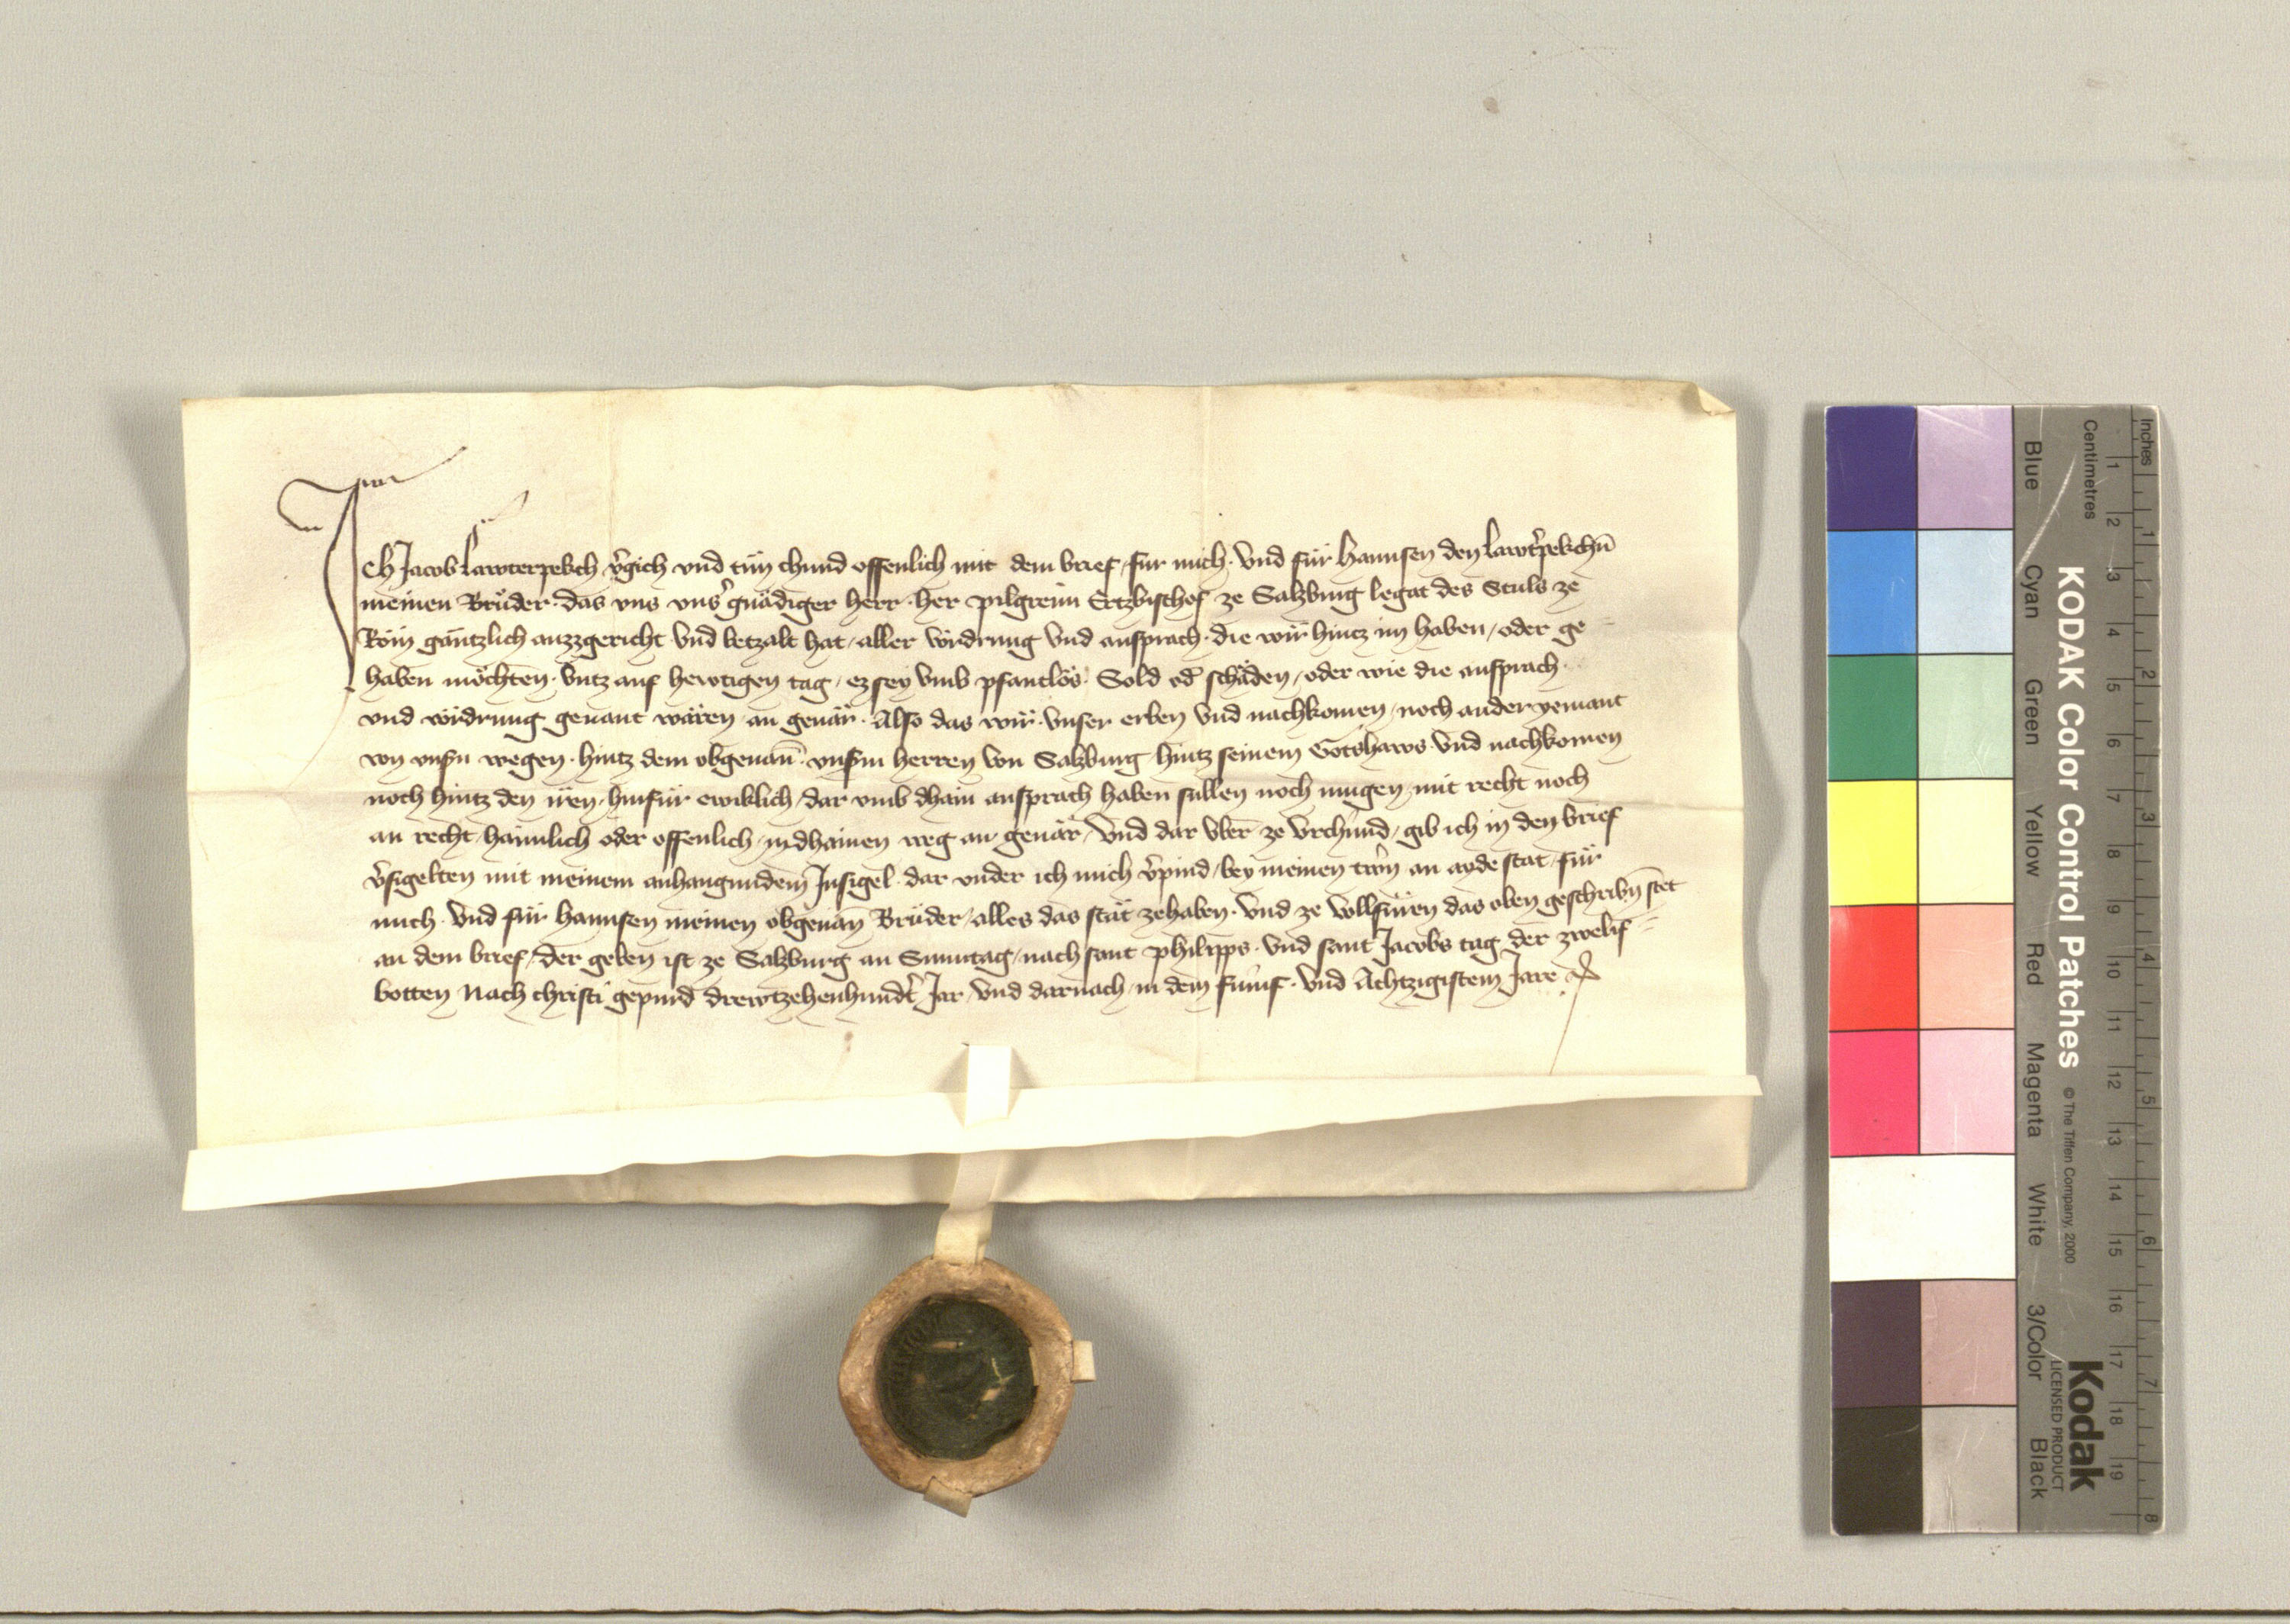 Ich Jacob Lawterpekch v̾gich vnd tün chund offenlich mit dem brief, fur mich. Vnd für Hannsen den Lawt̾pekchn̄
meinen Brüder. das vns vns̾ gnädiger herr. her pilgreim Ertzbischof ze Salzburg legat des Stuls ze
Röm gäntzlich auzzgericht Vnd betzalt hat, aller vordrung Vnd ansprach. die wir hintz im haben, oder ge
haben möchten. Vntz auf hewtigen tag, ez sey Vmb pfantlös. Sold od̾ schäden, oder wie die ansprach
vnd vordrung genant wären, an geuär. Also das wir. Vnser erben Vnd nachkomen, noch ander yemant
von vnsn wegen. hintz dem obgenan̄. vnsm herren von Salzburg, hintz seinem Gotshaws Vnd nachkomen
noch hintz den iren, hinfür ewiklich, dar vmb dhain ansprach haben sullen noch mugen, mit recht noch
an recht, haimlich oder offenlich, in dhainen weg an geuär, Vnd dar Vber ze Vrchund, gib ich in den brief
v̾sigelten mit meinem anhangundem Insigel. dar vnder ich mich v̾pind, bey meinen trwn an ayde stat, für
mich. Vnd für Hannsen meinen obgenan̄ Brüder, alles das stät zehaben. Vnd ze vollfüren das oben geschribn̄ stet
an dem brief, der geben ist ze Salzburg an Sunntag, nach sant philipps. Vnd sant Jacobs tag der zwelif
botten Nach christi gepurd drewtzehenhundt̾ Jar, Vnd darnach, in dem fümf. Vnd Achtzigistem Jare
KODAK Color Control Patches © The Tiffen Company, 2000
Kodak
LICENSED PRODUCT
Blue Cyan Green Yellow Red Magenta White 3/Color Black
Inches 1 2 3 4 5 6 7 8
Centimetres 1 2 3 4 5 6 7 8 9 10 11 12 13 14 15 16 17 18 19